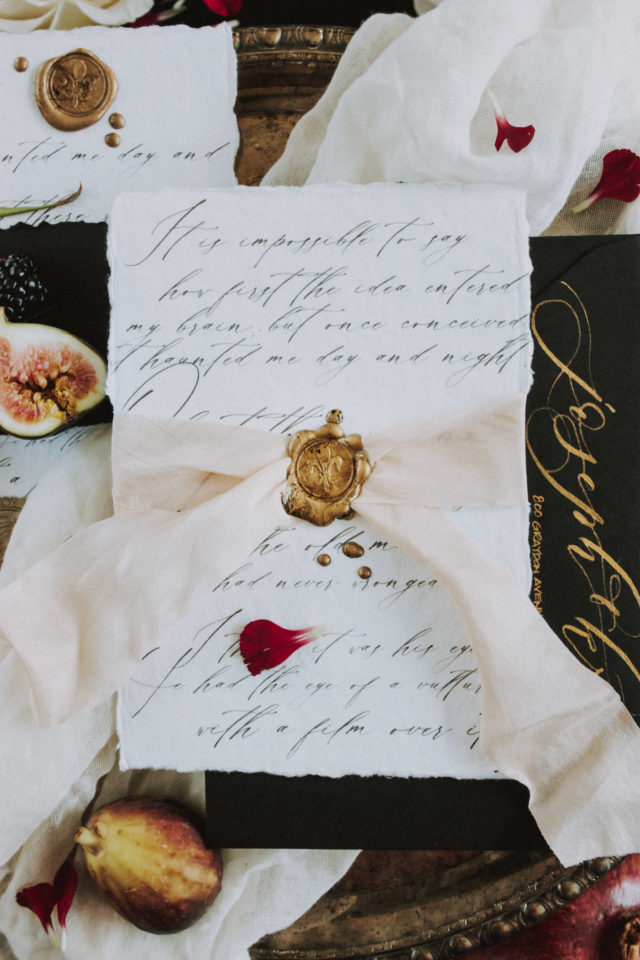 unted me day and
there
It is impossible to say
how first the idea entered
my brin, but once conceived
it haunted me day and night
the old m
had never wronged
I it was his ey
had the eye of a vultur
with a film over it
Joseph
800 GRAYDON AVEN
a